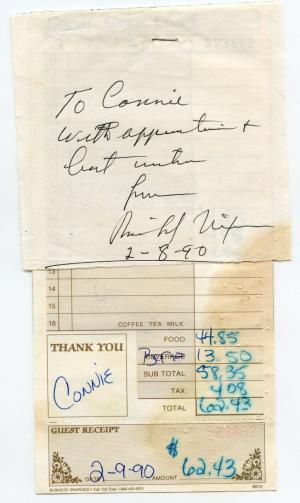 To Connie
With appreciation &
best wishes
from
Richard Nixon
2-8-90
13
14
15
16
COFFEE TEA MILK
FOOD 44.85
BEVERAGE 13.50
SUB TOTAL 58.35
TAX 4.08
TOTAL 62.43
THANK YOU
CONNIE
GUEST RECEIPT
2-9-90 $ 62.43
DATE AMOUNT
BUSINESS GRAPHICS